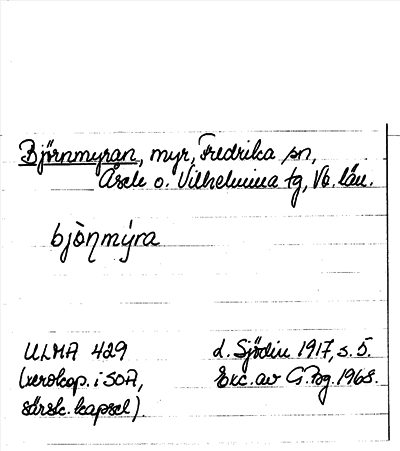 Björnmyran, myr, Fredrika sn,
Åsele o. Vilhelmina tg, Vb. län.
bjò̀ṇmýra
ULMA 429
(xerokop. i SOA,
särsk. kapsel).
L. Sjödin 1917, s. 5.
Exc. av G. Bg. 1968.